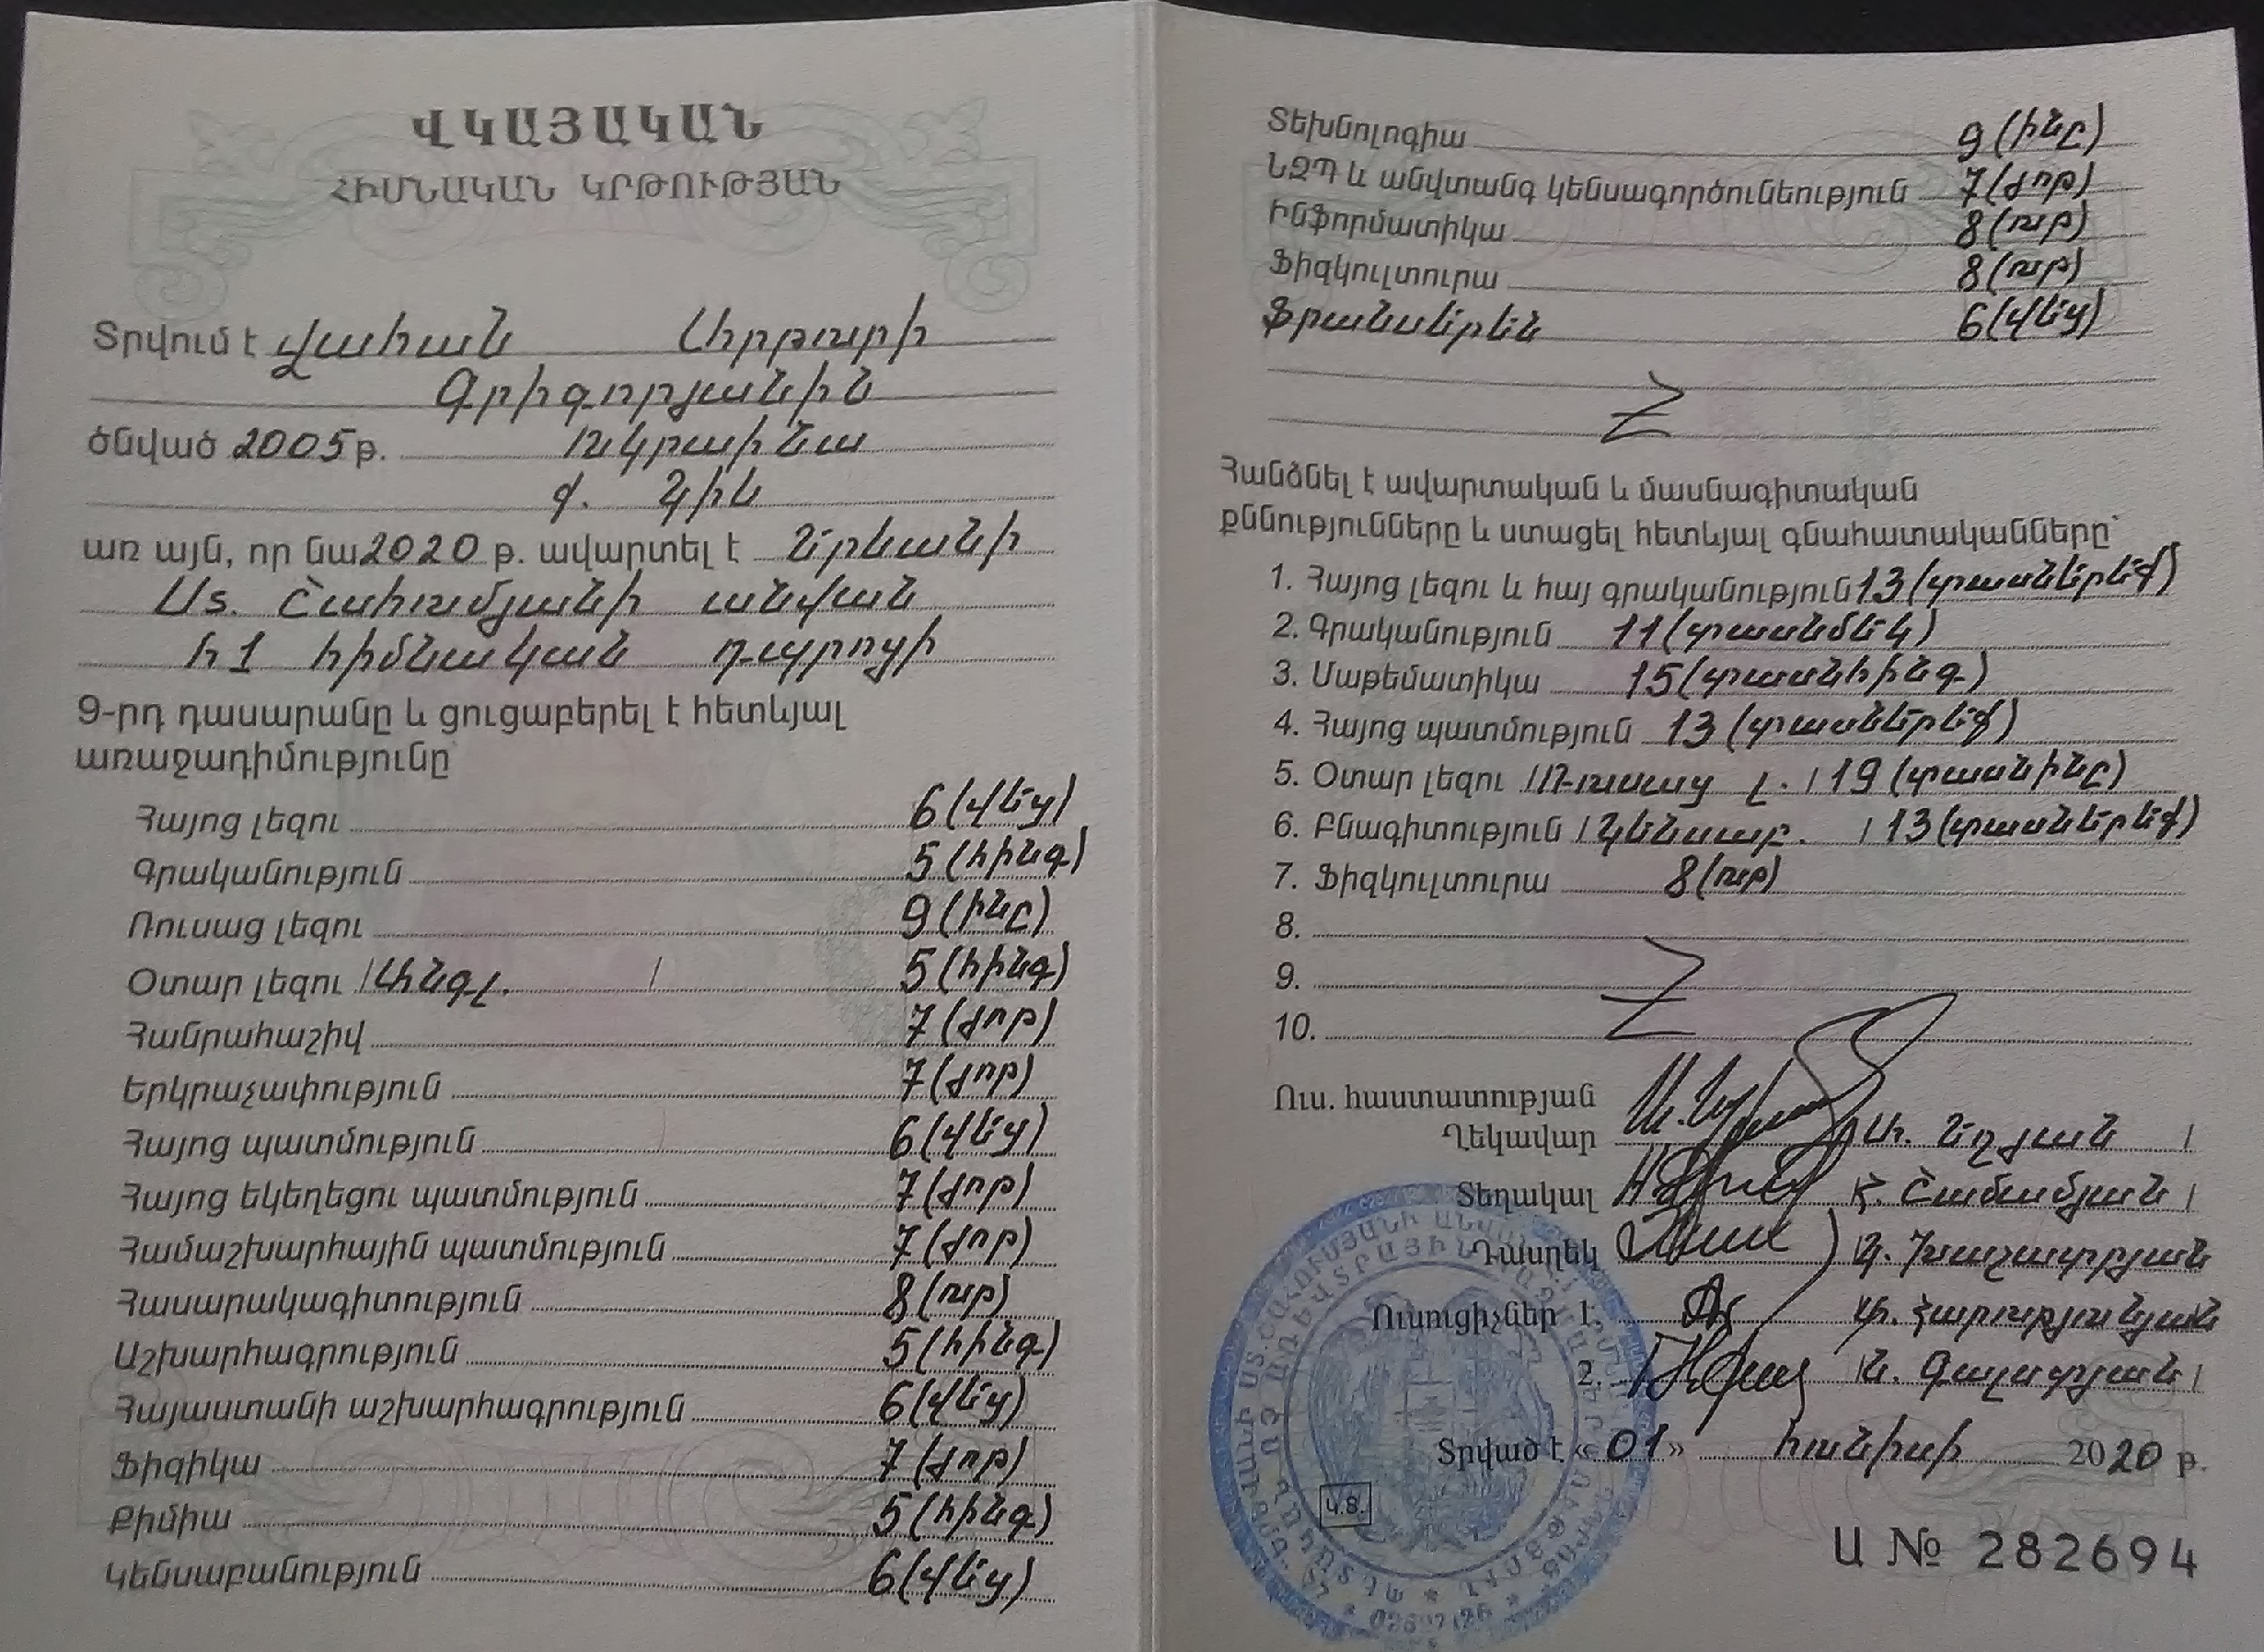 ՎԿԱՅԱԿԱՆ
ՀԻՄՆԱԿԱՆ ԿՐԹՈՒԹՅԱՆ
Տրվում է Վահան Արթուրի
Գրիգորյանին
ծնված 2005 թ. Ուկրաինա
ք. Կիև
առ այն, որ նա 2020 թ. ավարտել է Երևանի
Ստ. Շահումյանի անվան
հ 1 հիմնական դպրոցի
9-րդ դասարանը և ցուցաբերել է հետևյալ
առաջադիմությունը՝
Հայոց լեզու 6 (վեց)
Գրականություն 5 (հինգ)
Ռուսաց լեզու 9 (ինը)
Օտար լեզու /Անգլ. / 5 (հինգ)
Հանրահաշիվ 7 (յոթ)
Երկրաչափություն 7 (յոթ)
Հայոց պատմություն 6 (վեց)
Հայոց եկեղեցու պատմություն 7 (յոթ)
Համաշխարհային պատմություն 7 (յոթ)
Հասարակագիտություն 8 (ութ)
Աշխարհագրություն 5 (հինգ)
Հայաստանի աշխարհագրություն 6 (վեց)
Ֆիզիկա 7 (յոթ)
Քիմիա 5 (հինգ)
Կենսաբանություն 6 (վեց)
Տեխնոլոգիա 9 (ինը)
ՆԶՊ և անվտանգ կենսագործունեություն 7 (յոթ)
Ինֆորմատիկա 8 (ութ)
Ֆիզկուլտուրա 8 (ութ)
Ֆրանսերեն 6 (վեց)
Z
Հանձնել է ավարտական և մասնագիտական
քննությունները և ստացել հետևյալ գնահատականները՝
1. Հայոց լեզու և հայ գրականություն 13 (տասներեք)
2. Գրականություն 11 (տասնմեկ)
3. Մաթեմատիկա 15 (տասնհինգ)
4. Հայոց պատմություն 13 (տասներեք)
5. Օտար լեզու /Ռուսաց լ. / 19 (տասնինը)
6. Բնագիտություն /Կենսաբ. / 13 (տասներեք)
7. Ֆիզկուլտուրա 8 (ութ)
8.
9. Z
10.
Ուս. հաստատության
Ղեկավար Ա. Եղյան /
Տեղակալ Հ. Շամամյան /
Դասղեկ /Ա. Խաչատրյան
Ուսուցիչներ 1. Ա. Հարությունյան
2. /Ն. Գալստյան /
Տրված է «01» հունիսի 2020 թ.
Կ.Տ.
Ա № 282694